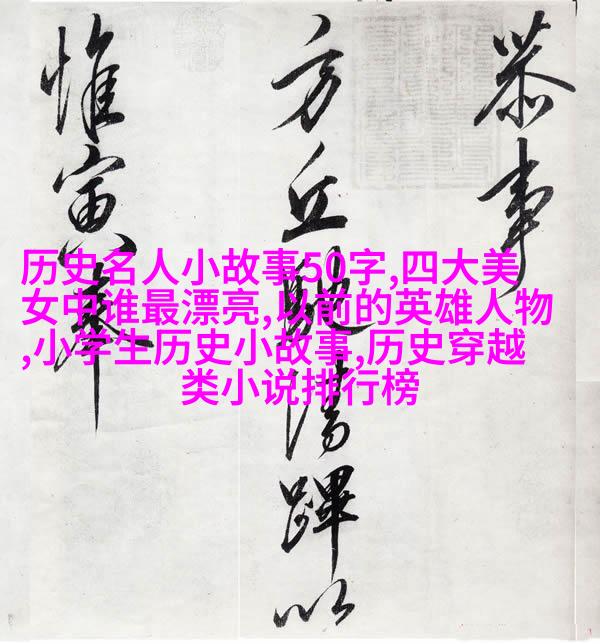 恭事
方丘清蹕以
惟寅奉
历史名人小故事50字,四大美
女中谁最漂亮,以前的英雄人物
,小学生历史小故事,历史穿越
类小说排行榜